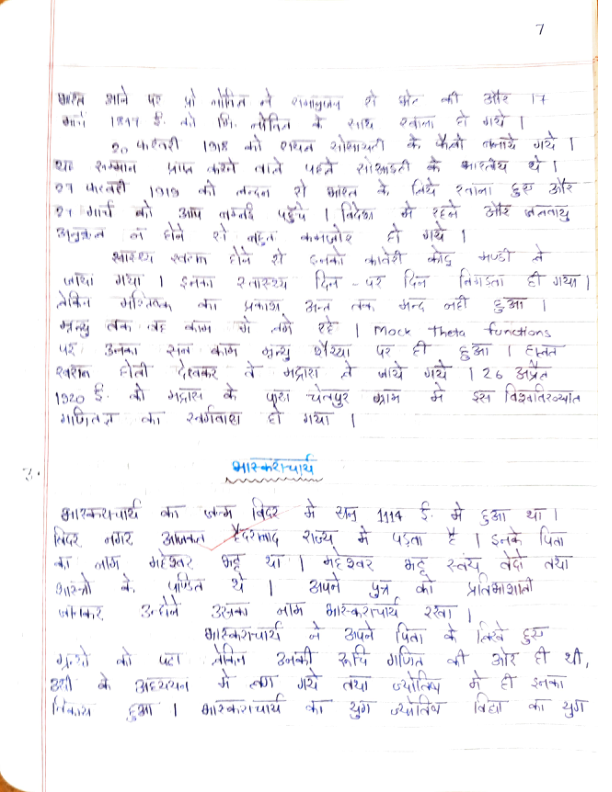 7
भारत आने पर प्रो लोविल ने रामानुजन से भेंट की और 17
मार्च को मि. के साथ रवाना हो गये ।
20 फरवरी 1918 को रायल सोसायटी के फैलो बनाये गये ।
यह सम्मान प्राप्त करने वाले पहले सोसाइटी के भारतीय थे ।
27 फरवरी 1919 को लन्दन से भारत के लिये रवाना हुए और
27 मार्च को आप बम्बई पहुँचे । विदेश में रहने और जलवायु
अनुकूल न होने से बहुत कमजोर हो गये ।
स्वास्थ्य खराब होने से इनको कावेरी कोडु मण्डी ले
जाया गया । इनका स्वास्थ्य दिन - पर दिन बिगडता ही गया ।
लेकिन मस्तिष्क का प्रकाश अन्त तक मन्द नही हुआ ।
मृत्यु तक वह काम में लगे रहे । Mock Theta functions
पर उनका सब काम मृत्यु शैय्या पर ही हुआ । हालत
खराब होती देखकर वे मद्रास ले जाये गये । 26 अप्रैल
1920 ई. को मद्रास के पास चेतपुर ग्राम मे इस विश्वविख्यात
गणितज्ञ का स्वर्गवास हो गया ।
3.
भास्कराचार्य
भास्कराचार्य का जन्म बिदर मे सन् 1114 ई. मे हुआ था ।
बिदर नगर आजकल हैदराबाद राज्य मे पड़ता है । इनके पिता
का नाम महेश्वर भट्ट था । महेश्वर भट्ट स्वंय वेदो तथा
शास्त्रो के पण्डित थे । अपने पुत्र को प्रतिभाशाली
जानकर उन्होने उसका नाम भास्कराचार्य रखा ।
भास्कराचार्य ने अपने पिता के लिखे हुए
ग्रन्थो को पढा लेकिन उनकी रूचि गणित की ओर ही थी,
उसी के अध्ययन मे लग गये तथा ज्योतिष मे ही इनका
विकास हुआ । भास्कराचार्य का युग ज्योतिष विद्या का युग